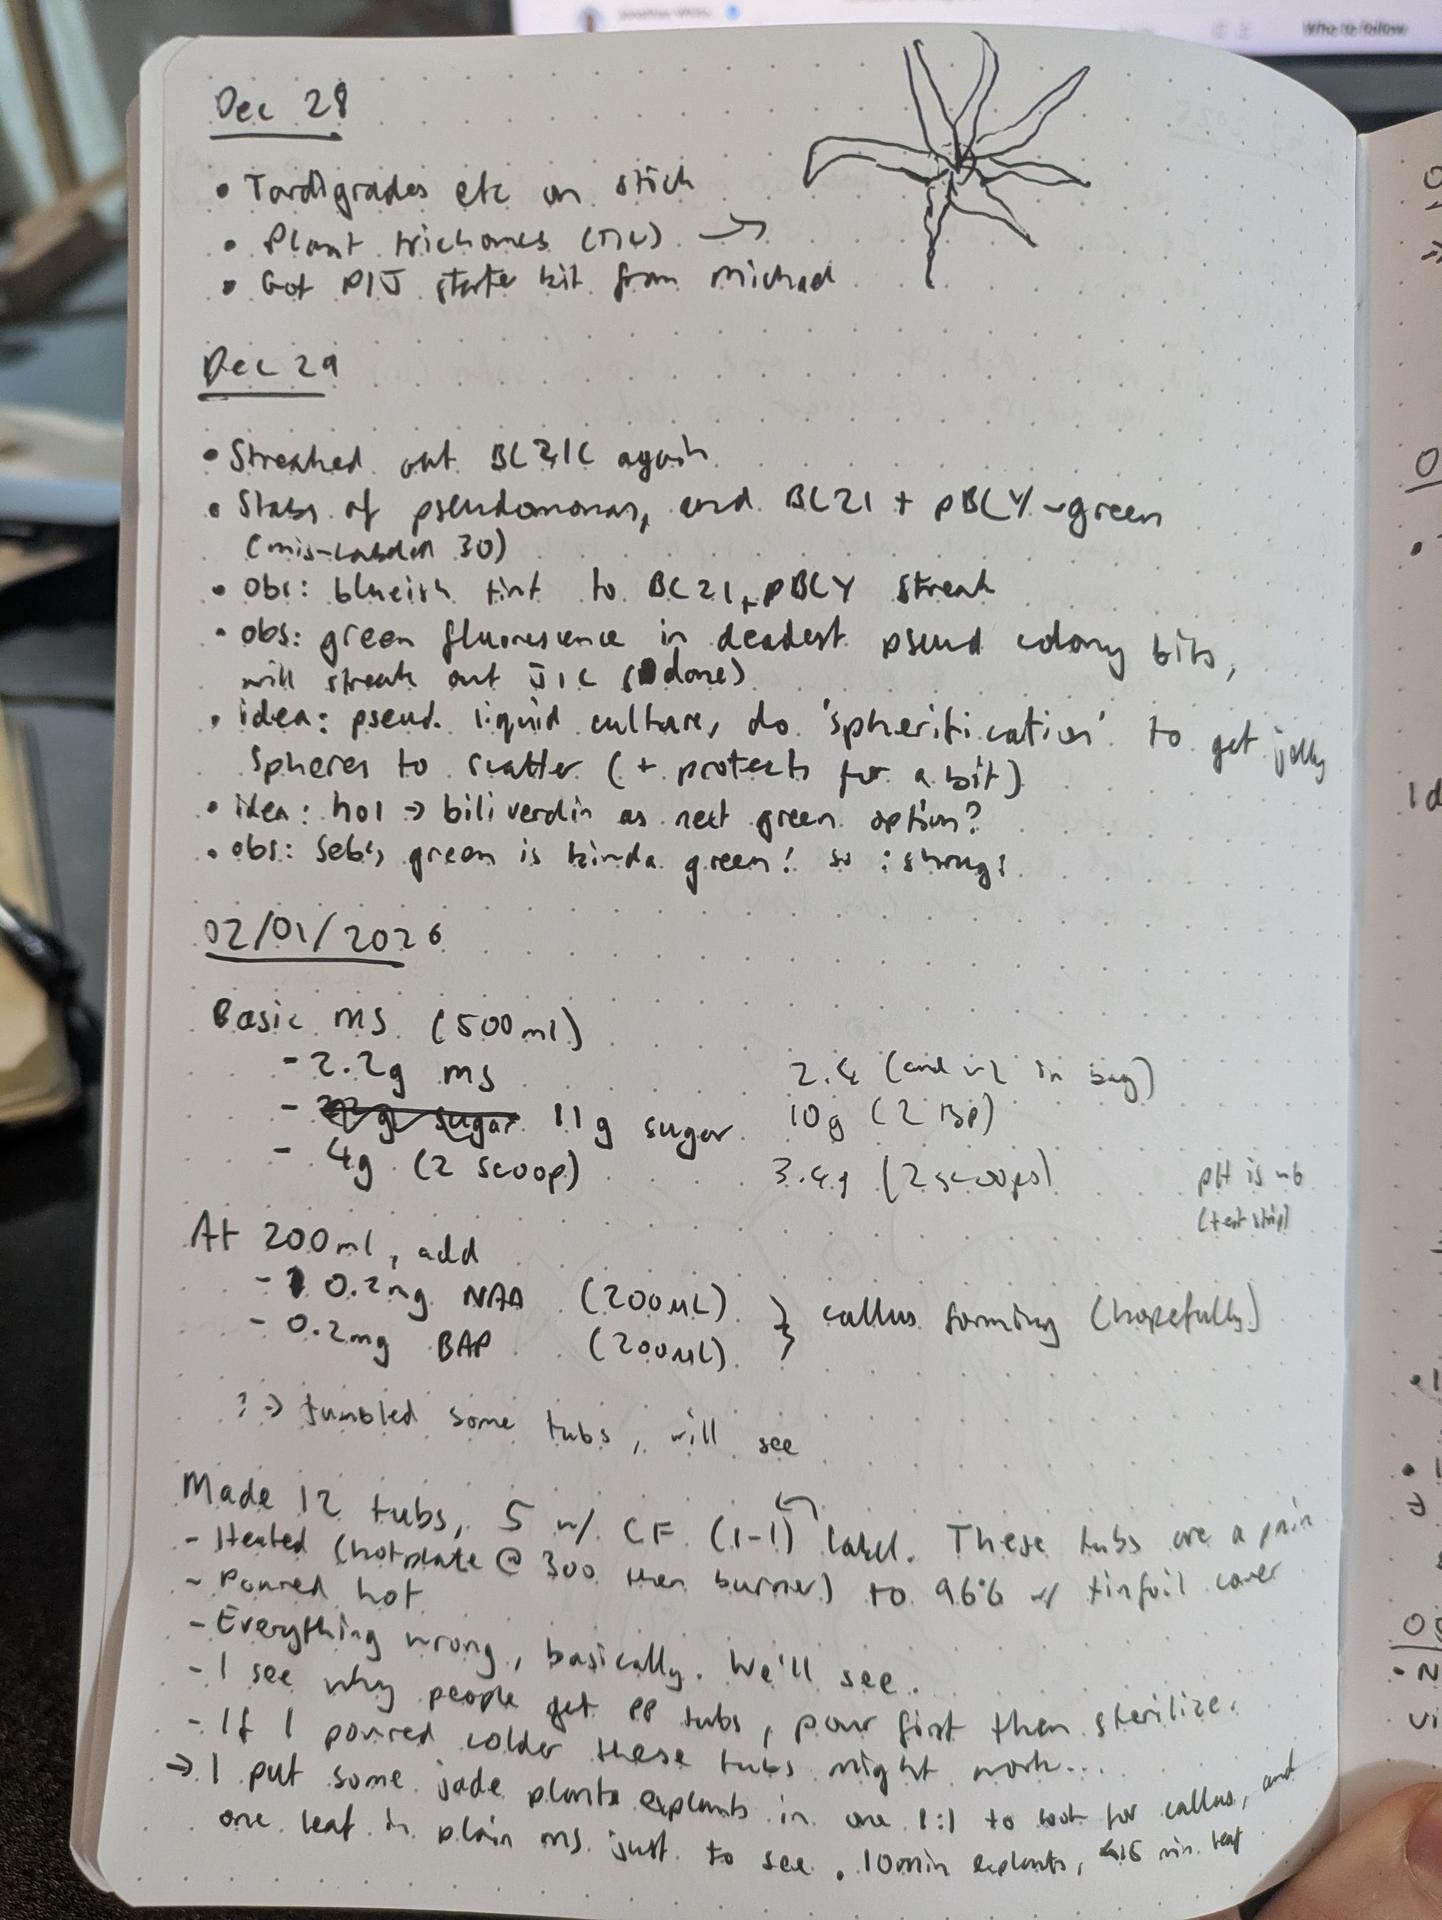 Who to follow
Dec 28
• Tardigrades etc on stick
• Plant trichomes (TLC) →
• Got PIJ starter kit from Michael
Dec 29
• Streaked out BL21C again
• Stabs of pseudomonas, and BL21 + pBLY-green
(mis-labelled 30)
• obs: blueish tint to BL21 + pBLY streak
• obs: green fluorescence in deadest pseud colony bits,
will streak out JIC (done)
• idea: pseud. liquid culture, do 'spherification' to get jelly
spheres to scatter (+ protects for a bit)
• idea: ho1 → biliverdin as next green option?
• obs: Seb's green is kinda green! so :shrug:
02/01/2026
Basic MS (500ml)
- 2.2g MS 2.4 (and ~2 in bag)
- 11g sugar 10g (2 tsp)
- 4g (2 scoop) 3.4g (2 scoops) pH is ~6
(test strip)
At 200ml, add
- 0.2mg NAA (200µL) } callus forming (hopefully)
- 0.2mg BAP (200µL)
? → fumbled some tubs, will see
Made 12 tubs, 5 w/ CF (1-1) label. These tubs are a pain
- Heated (hotplate @ 300 then burner) to 96°C w/ tinfoil cover
- Poured hot
- Everything wrong, basically. We'll see.
- I see why people get PP tubs, pour first then sterilize.
- If I poured colder these tubs might work...
→ I put some jade plant explants in one 1:1 to look for callus, and
one leaf in plain MS just to see. 10min explants, 15 min leaf